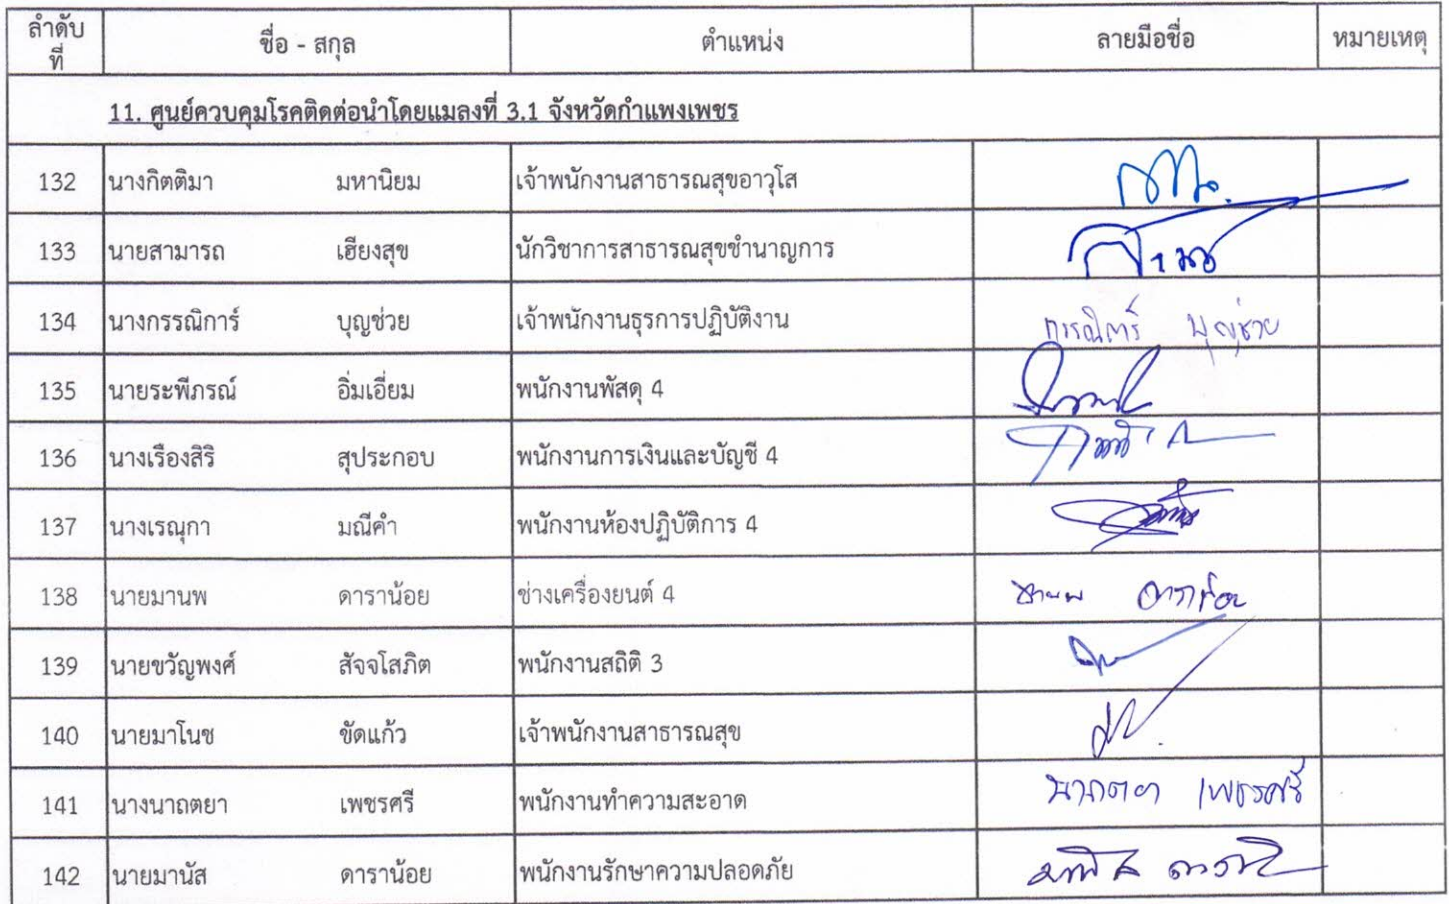 ลำดับที่ ชื่อ - สกุล ตำแหน่ง ลายมือชื่อ หมายเหตุ
11. ศูนย์ควบคุมโรคติดต่อนำโดยแมลงที่ 3.1 จังหวัดกำแพงเพชร
132 นางกิตติมา มหานิยม เจ้าพนักงานสาธารณสุขอาวุโส
133 นายสามารถ เฮียงสุข นักวิชาการสาธารณสุขชำนาญการ
134 นางกรรณิการ์ บุญช่วย เจ้าพนักงานธุรการปฏิบัติงาน กรรณิการ์ บุญช่วย
135 นายระพีภรณ์ อิ่มเอี่ยม พนักงานพัสดุ 4
136 นางเรืองสิริ สุประกอบ พนักงานการเงินและบัญชี 4
137 นางเรณุกา มณีคำ พนักงานห้องปฏิบัติการ 4
138 นายมานพ ดาราน้อย ช่างเครื่องยนต์ 4 มานพ ดาราน้อย
139 นายขวัญพงศ์ สัจจโสภิต พนักงานสถิติ 3
140 นายมาโนช ขัดแก้ว เจ้าพนักงานสาธารณสุข
141 นางนาถตยา เพชรศรี พนักงานทำความสะอาด นาถตยา เพชรศรี
142 นายมานัส ดาราน้อย พนักงานรักษาความปลอดภัย